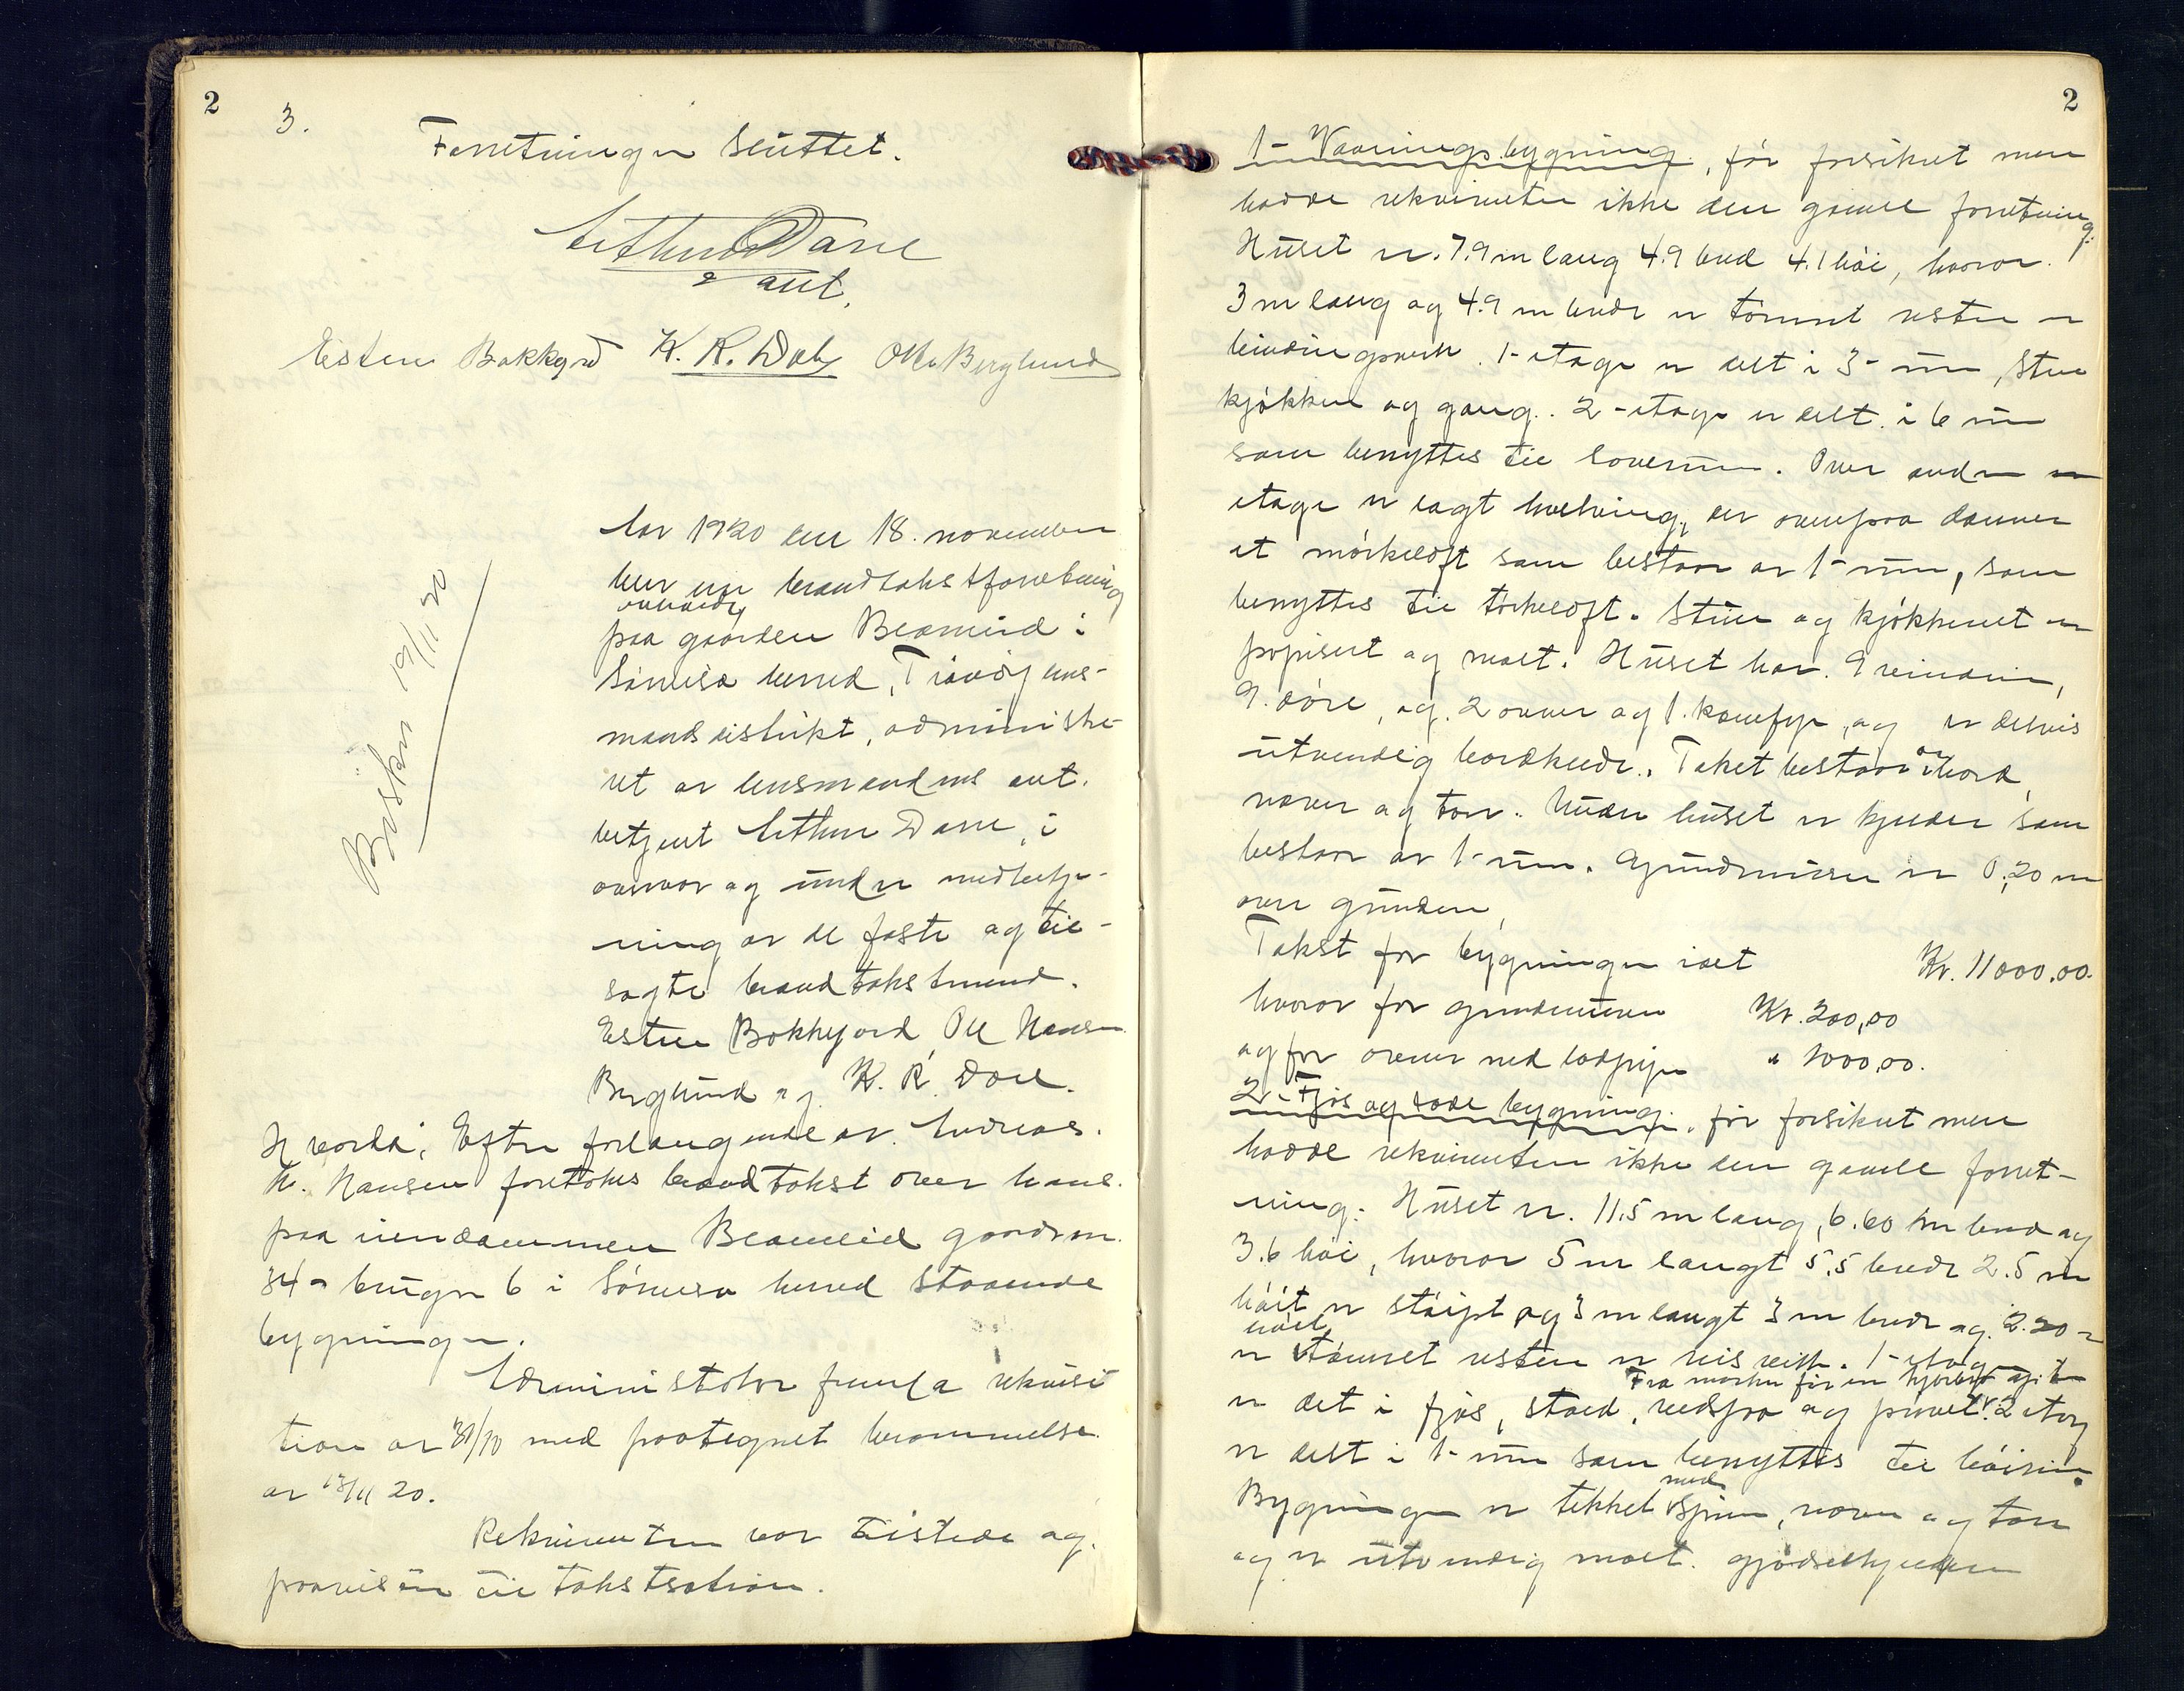 2
3.
Forretningen sluttet.
Arthur Dane
aut.
Esten Bakkejord K. R. Dahl Ole Berglund
Aar 1920 den 18. november
blev en brandtakstforretning
avholdt
paa gaarden Blomlid i
Sörreisa herred, Tranöy lens-
mandsdistrikt, administre-
ret av lensmandens aut.
betjent Arthur Dane, i
overvær og under medbetje-
ning av de faste og til-
sagte brandtakstmænd.
Esten Bakkejord, Ole Hansen
Berglund og K. R. Dahl.
Beskr. 19/11 20
Hvorda: Efter forlangende av Andreas
N. Hansen foretokes brandtakst over hans
paa eiendommen Blomlid gaardsnr.
84 bruksnr 6 i Sörreisa herred staaende
bygninger.
Administrator fremla rekvisi
tion av 30/10 med paategnet berammelse
av 13/11 20.
Rekvirenten var tilstede og
paaviste til takstsation.
2
1- Vaaningsbygning, för forsikret men
hadde rekvirenten ikke den gamle forretning.
Huset er 7.9 m lang 4.9 bred 4.1 höi, hvorav
3 m lang og 4.9 m bred er tömret resten er
bindingsverk. 1- etage er delt i 3- rum, stue
kjökken og gang. 2- etage er delt i 6 rum
som benyttes til soverum. Over anden
etage er lagt hvelving, der ovenpaa danner
et mörkeloft som bestaar av 1- rum, som
benyttes til törkeloft. Stuen og kjökkenet er
papisert og malt. Huset har 9 vinduer,
9. döre, og 2 ovner og 1. komfyr, og er delvis
utvendig bordklædt. Taket bestaar av bord,
næver og torv. Under huset er kjelder som
bestaar av 1- rum. Grundmuren er 0,20 m
over grunden,
Takst for bygningen ialt Kr. 11000.00.
hvorav for grundmuren Kr. 200,00
og for ovner med lodpipe " 1000,00.
2- Fjös og lade bygning, för forsikret men
hadde rekvirenten ikke den gamle forret-
ning. Huset er 11.5 m lang, 6.60 m bred og
3.6 höi, hvorav 5 m langt 5.5 bredt 2.5 m
höit er støipt og 3 m langt 3 m bredt og 2.20 m
höit
er tömret resten er reisverk. 1- etage
er delt i fjös, stald, vedskjaa og privet. 2 etage
er delt i 1- rum som benyttes til höirum.
Bygningen er tekket med spon, næver og torv
og er utvendig malt. Gjödselkjelderen